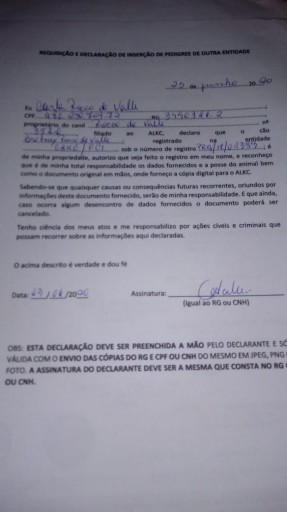 REQUISIÇÃO E DECLARAÇÃO DE INSERÇÃO DE PEDIGREE DE OUTRA ENTIDADE
22 de junho 2020
Eu
CPF
proprietário do canil Roca do Valle, nº
filiado ao ALKC, declaro que o cão
registrado na entidade
sob o número de registro, é
de minha propriedade, autorizo que seja feito o registro em meu nome, e reconheço
que é de minha total responsabilidade os dados fornecidos e a posse do animal bem
como o documental original em mãos, onde forneço a cópia digital para o ALKC.
Sabendo-se que quaisquer causas ou consequências futuras recorrentes, oriundos por
informações deste documento fornecido, serão de minha responsabilidade. E que ainda,
caso ocorra algum desencontro de dados fornecidos o documento poderá ser
cancelado.
Tenho ciência dos meus atos e me responsabilizo por ações cíveis e criminais que
possam recorrer sobre as informações aqui declaradas.
O acima descrito é verdade e dou fé
Data: /2020 Assinatura:
(Igual ao RG ou CNH)
OBS: ESTA DECLARAÇÃO DEVE SER PREENCHIDA A MÃO PELO DECLARANTE E SÓ
VÁLIDA COM O ENVIO DAS CÓPIAS DO RG E CPF OU CNH DO MESMO EM JPEG, PNG
FOTO. A ASSINATURA DO DECLARANTE DEVE SER A MESMA QUE CONSTA NO RG
OU CNH.